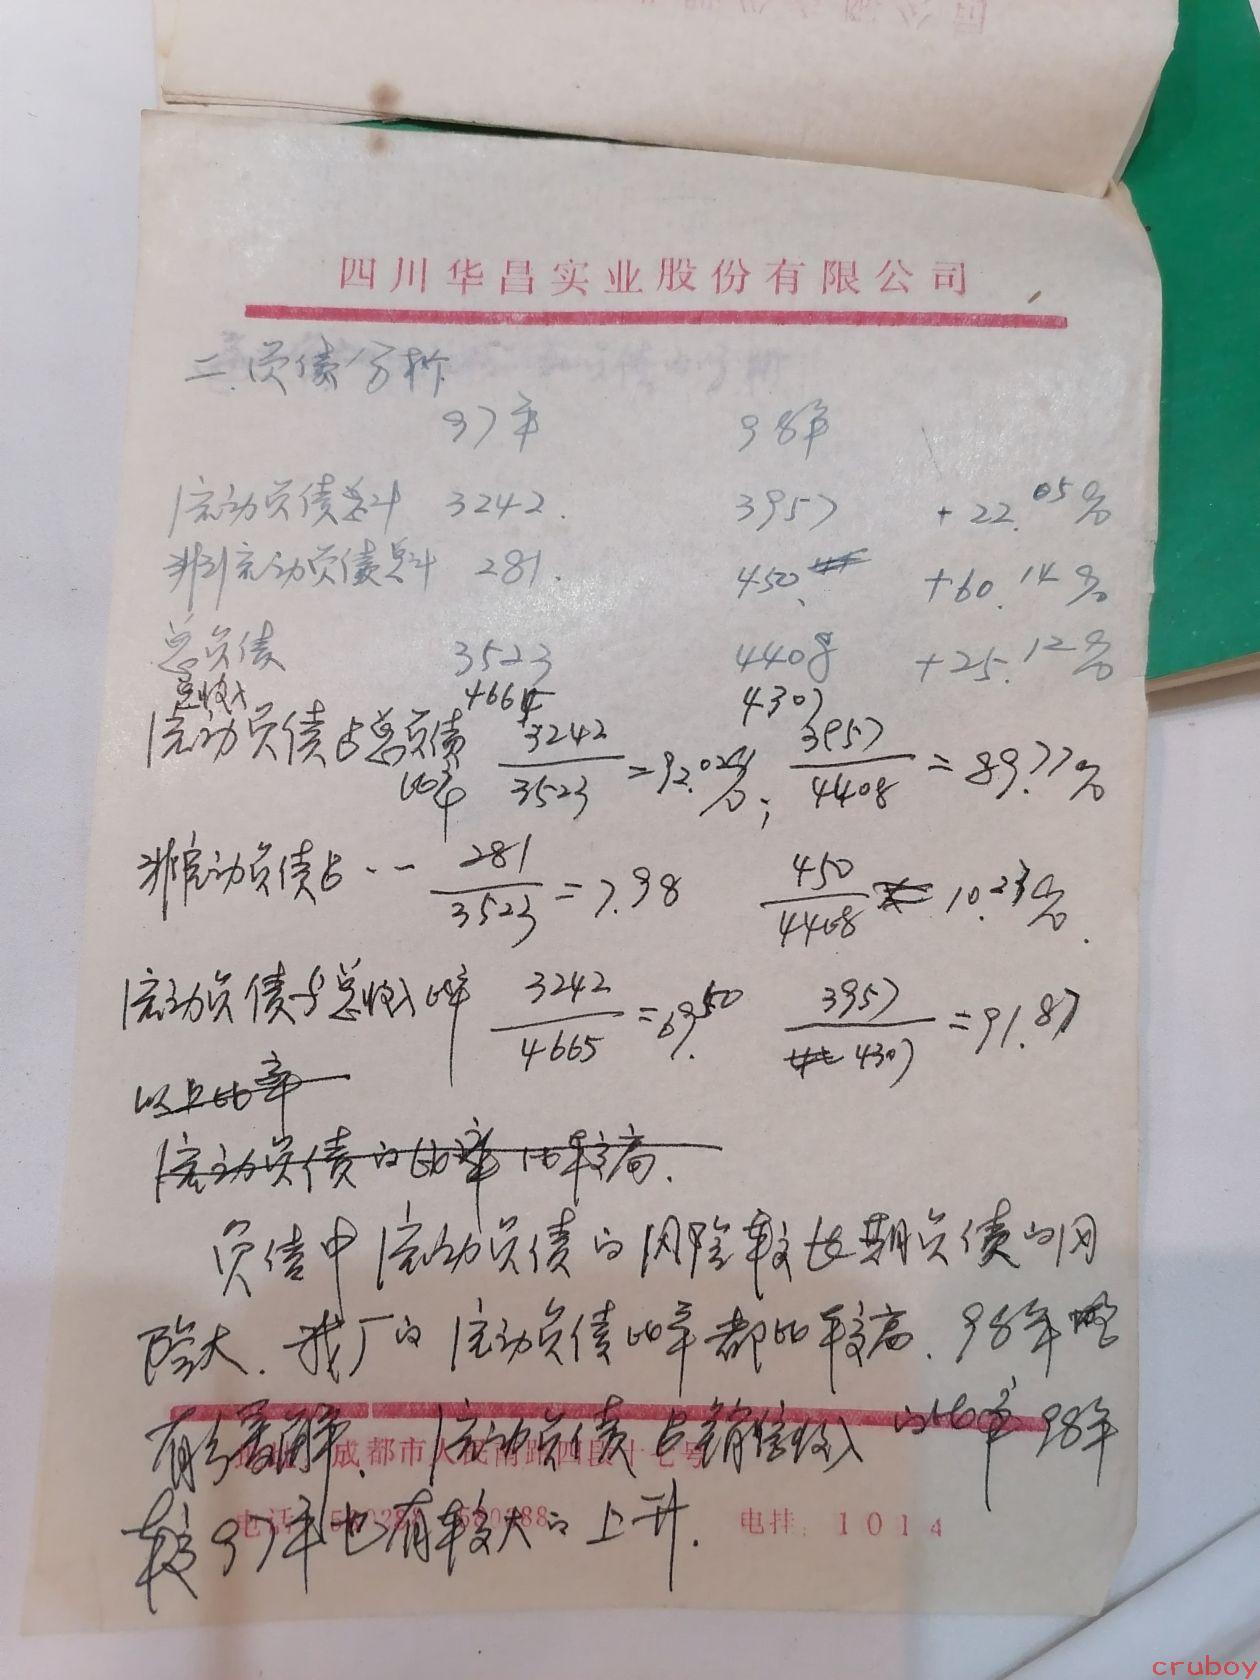 四川华昌实业股份有限公司
二、负债分析
97年 98年
流动负债总计 3242. 3957 +22.05%
非流动负债总计 281. 450. +60.14%
总负债 3523 4408 +25.12%
总收入 4665 4307
流动负债占总负债比率 3242/3523=92.02%; 3957/4408=89.77%
非流动负债占·· 281/3523=7.98 450/4408 10.23%.
流动负债与总收入比率 3242/4665=69.50 3957/4307=91.87
以上比率
流动负债的比率比较高.
负债中流动负债的风险较长期负债的风
险大.我厂的流动负债比率都比较高.98年略
有缓解.流动负债占销售收入的比率98年
成都市人民南路四段十七号
较97年也有较大的上升.
电话 580288 580288 电挂:1014
cruboy